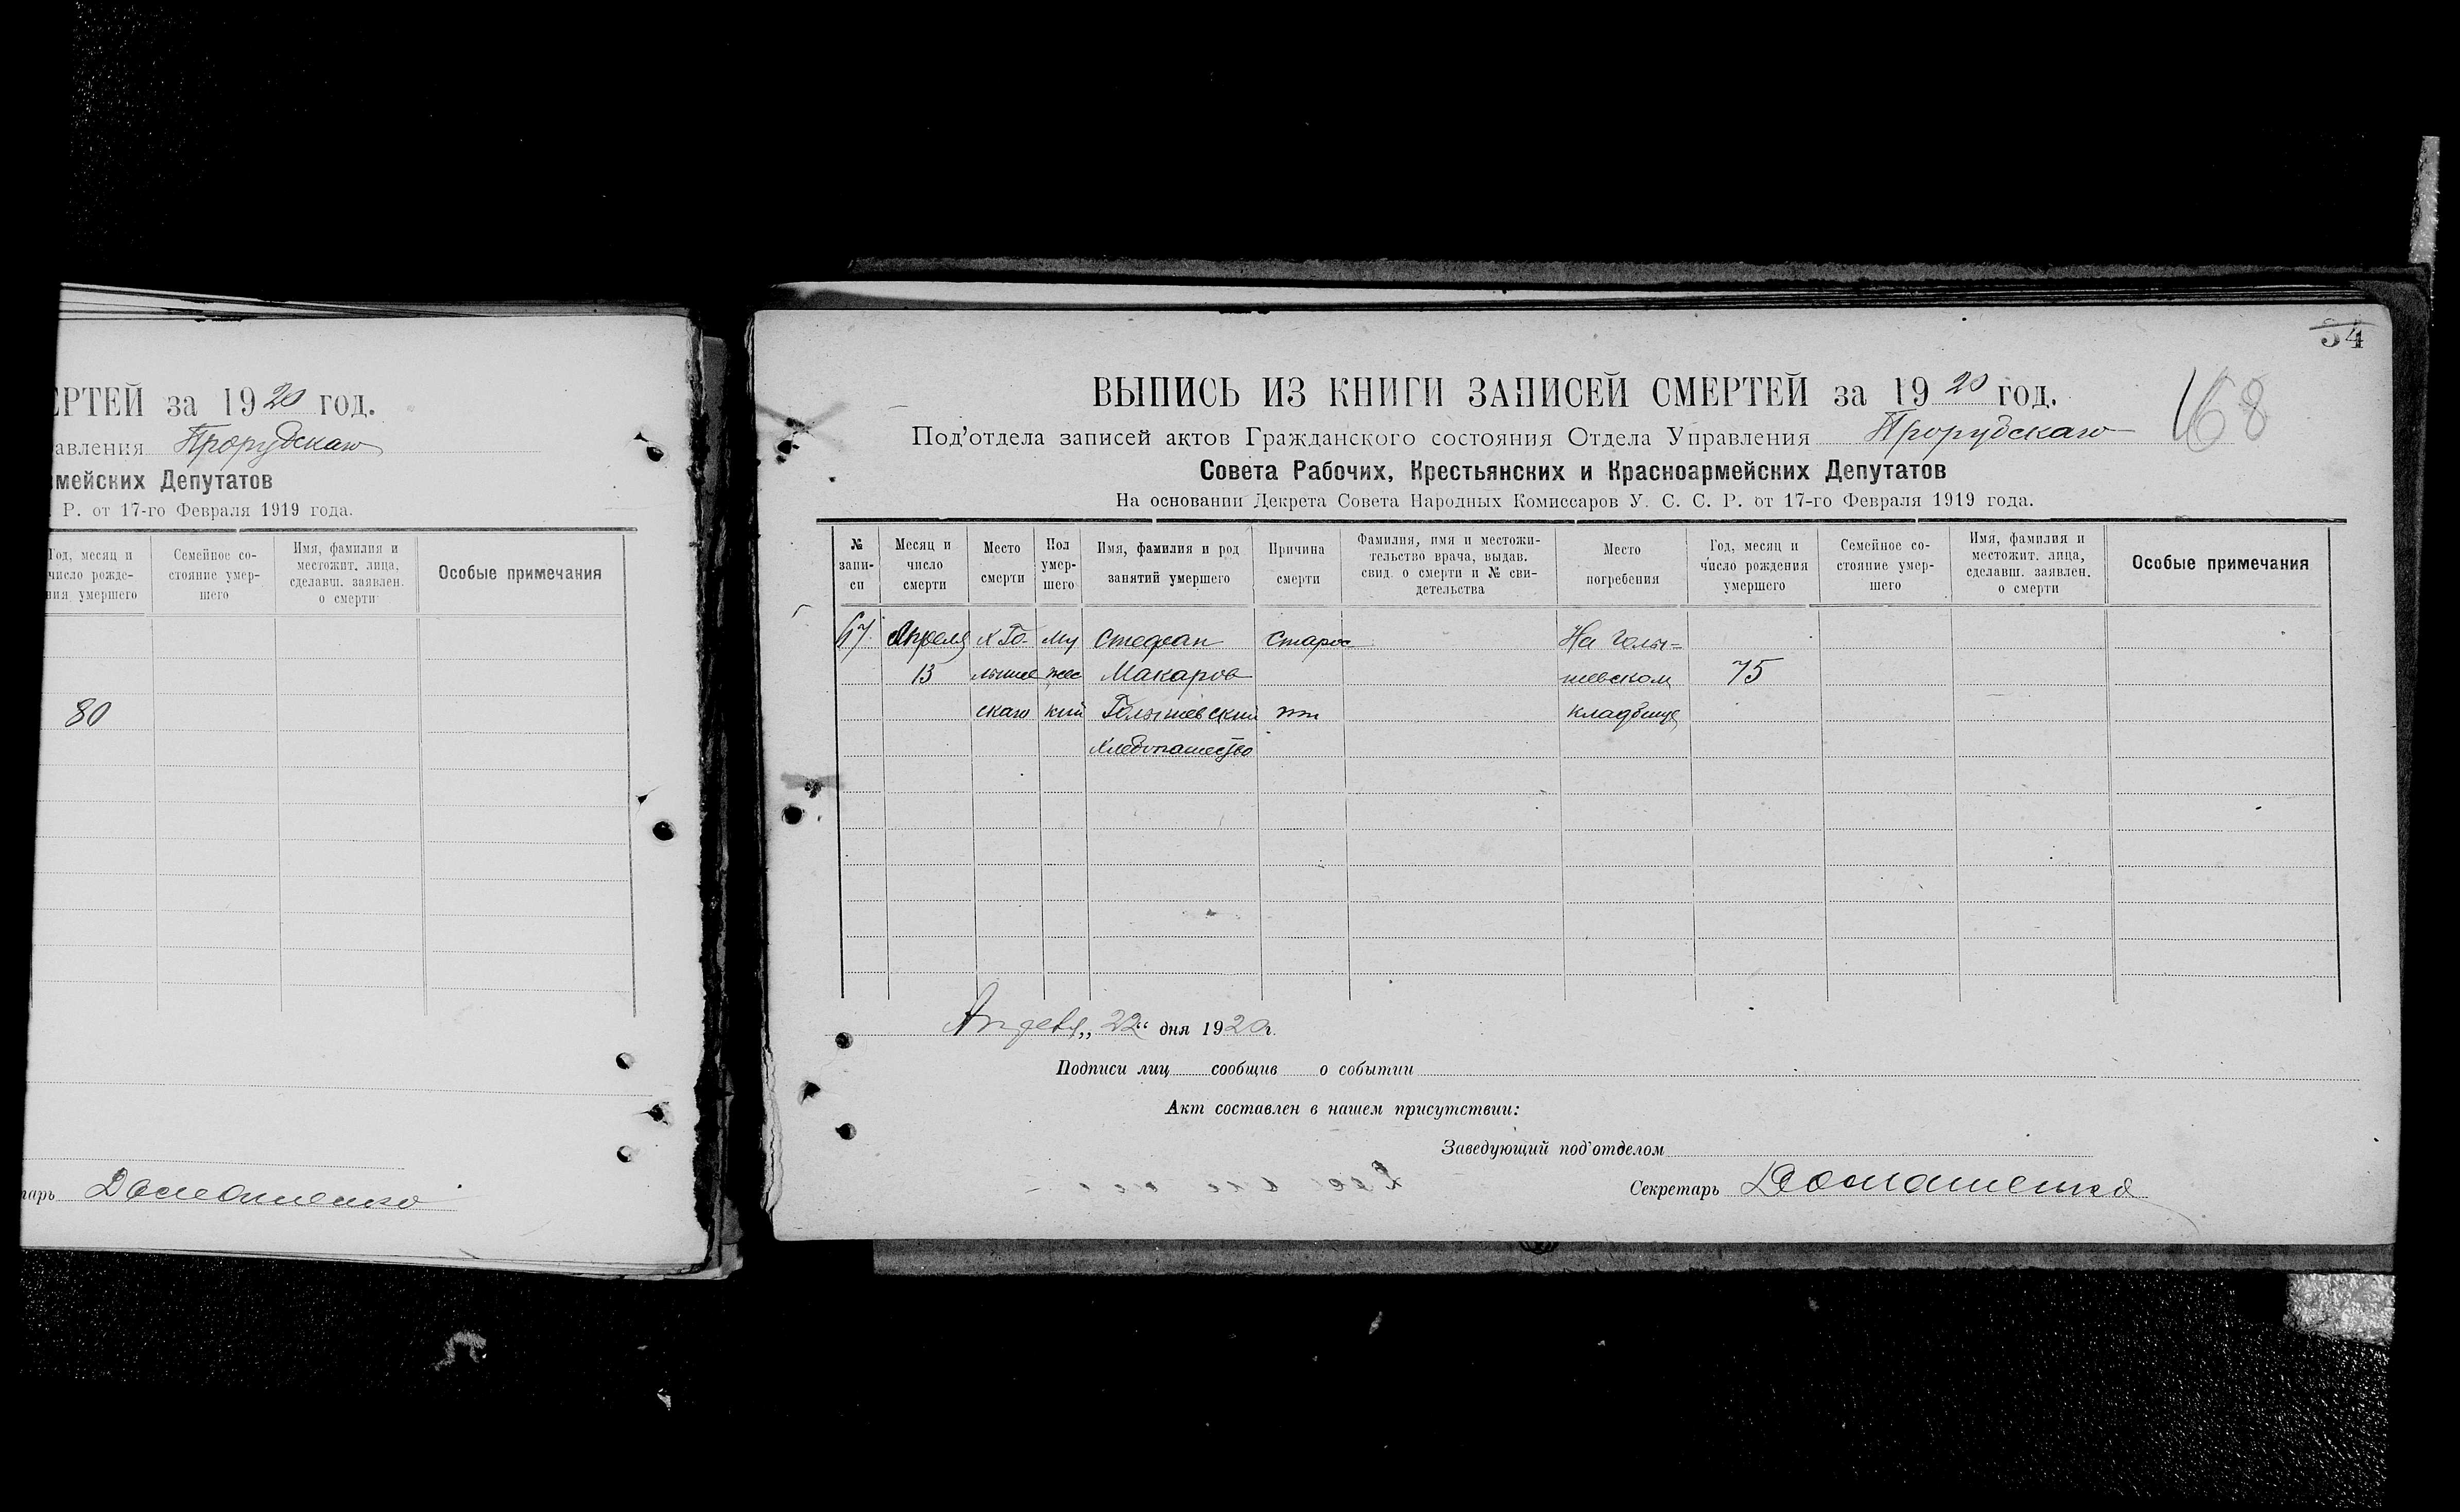 ЕРТЕЙ за 1920 год.
авления Прорубскаго
мейских Депутатов
Р. от 17-го Февраля 1919 года.
Год, месяц и число рожде- ния умершего
Семейное со- стояние умер- шего
Имя, фамилия и местожит. лица, сделавш. заявлен. о смерти
Особые примечания
80
тарь Домашенко
34
168
ВЫПИСЬ ИЗ КНИГИ ЗАПИСЕЙ СМЕРТЕЙ за 1920 год.
Под'отдела записей актов Гражданского состояния Отдела Управления Прорубскаго
Совета Рабочих, Крестьянских и Красноармейских Депутатов
На основании Декрета Совета Народных Комиссаров У. С. С. Р. от 17-го Февраля 1919 года.
№ запи- си
Месяц и число смерти
Место смерти
Пол умер- шего
Имя, фамилия и род занятий умершего
Причина смерти
Фамилия, имя и местожи- тельство врача, выдав. свид. о смерти и № сви- детельства
Место погребения
Год, месяц и число рождения умершего
Семейное со- стояние умер- шего
Имя, фамилия и местожит. лица, сделавш. заявлен. о смерти
Особые примечания
67. Апреля х Го- му Стефан Старос На Голы=
13 лыше жес Макаров шевском 75
скаго кий Голышевский ти кладбище
хлебопашество
Апреля „22“ дня 1920 г.
Подписи лиц сообщив о событии
Акт составлен в нашем присутствии:
Заведующий под'отделом
Секретарь Домашенко